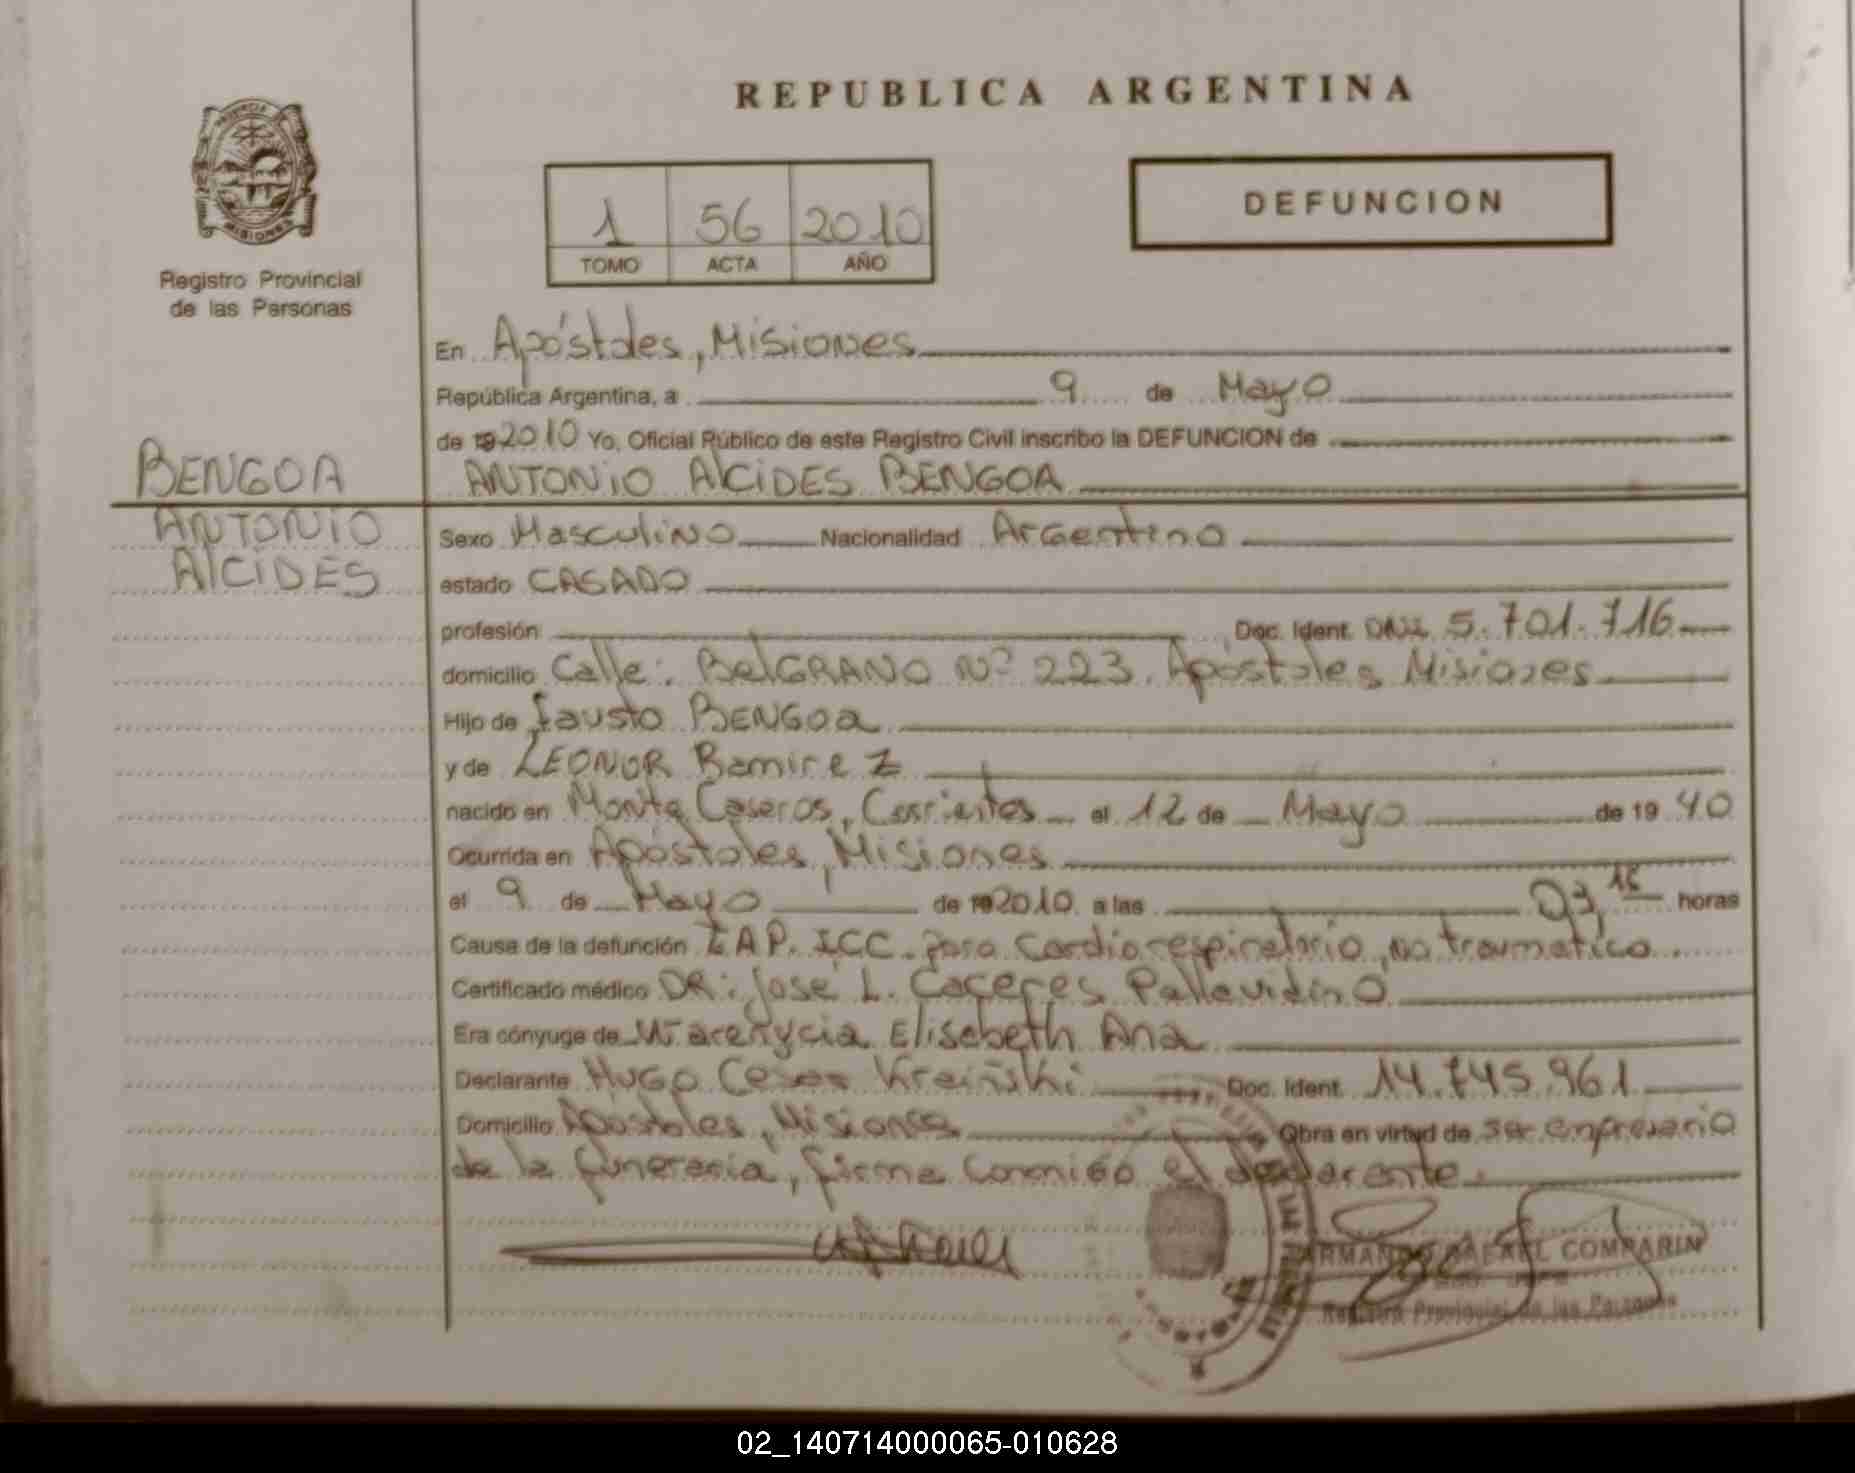 REPUBLICA ARGENTINA
PROVINCIA
MISIONES
Registro Provincial
de las Personas
1 56 2010
TOMO ACTA AÑO
DEFUNCION
En Apóstoles, Misiones
República Argentina, a 9 de Mayo
de 19 2010 Yo, Oficial Público de este Registro Civil inscribo la DEFUNCION de
BENGOA
ANTONIO AlCiDES BENGOA
ANTONIO
AlCiDES
Sexo Masculino Nacionalidad Argentino
estado CASADO
profesión Doc. Ident. DNI 5.701.716
domicilio Calle: BelGRANO Nº 223. Apóstoles Misiones
Hijo de Fausto BENGOa
y de LEONOR Ramirez
nacido en Monte Caseros, Corrientes el 12 de Mayo de 19 40
Ocurrida en Apóstoles, Misiones
el 9 de Mayo de 19 2010 a las 03,15 horas
Causa de la defunción EAP. ICC. paro Cardiorespiratorio, no traumatico
Certificado médico DR: José L. Caceres Pallavidino
Era cónyuge de Elisabeth Ana
Declarante HUGO Cesar Kraiñski Doc. Ident. 14.745.961
Domicilio Apostoles, Misiones Obra en virtud de ser empresario
de la funeraria, firma conmigo el declarante.
ARMANDO RAFAEL COMPARIN
Registro Provincial de las Personas
02_140714000065-010628